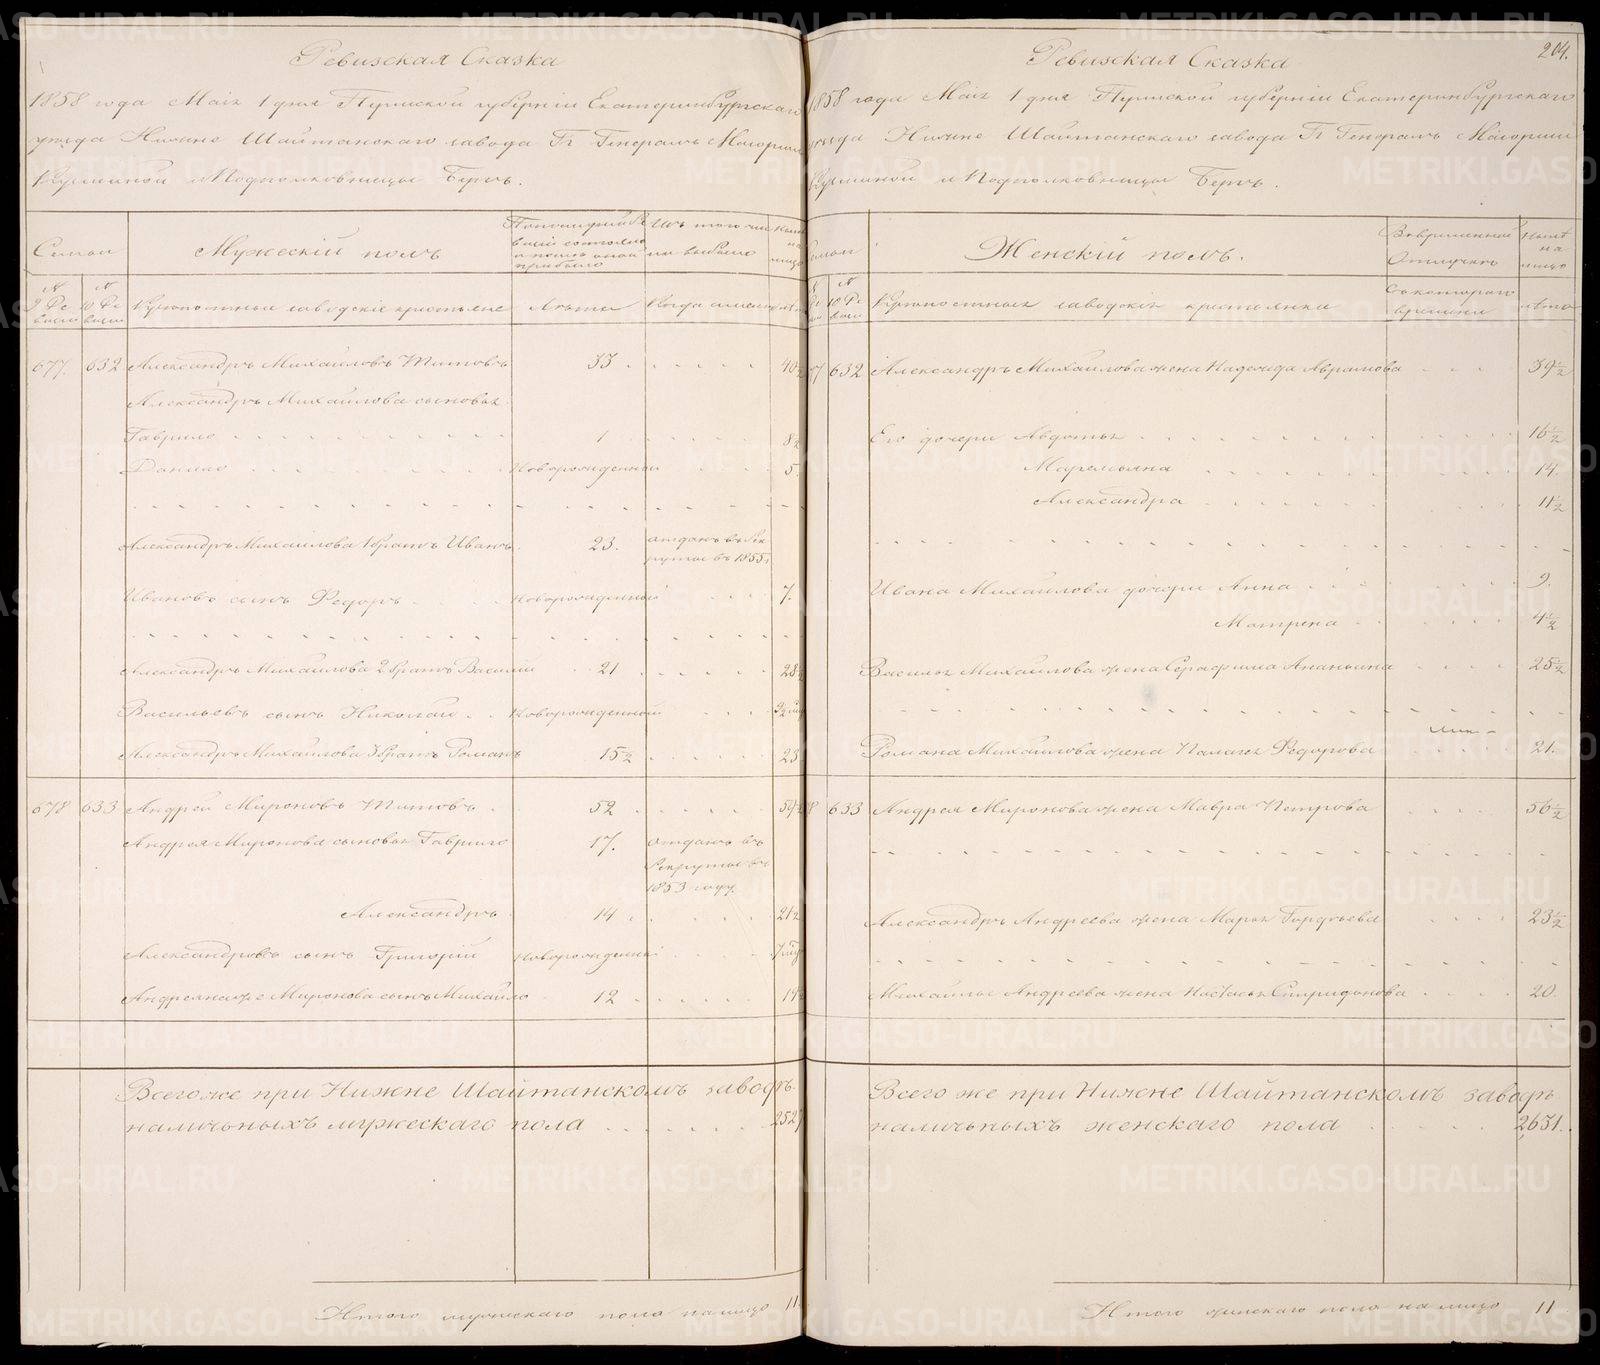 204.
Ревизская Сказка
1858 года Маія 1 дня Пермской губерніи Екатеринбургскаго
уезда Нижне Шайтанскаго завода Гг Генералъ Маіорши
Кузминой и Подполковницы Бергъ.
Семьи
Мужескій полъ
Изъ того числа выбыло
№ 9 Ревизіи
№ 10 Ревизіи
Крѣпостные заводскіе крестьяне
Лѣта
Когда именно
677. 632. Александръ Михайловъ Титовъ 33 40½
Александръ Михайлова сыновья
Гаврило 1 8½
Данило Новорожденной 5.
Александръ Михайлова 1 братъ Иванъ. 23. отданъ въ рекруты въ 1855
Ивановъ сынъ Федоръ Новорожденной 7.
Александръ Михайлова 2 братъ Василій 21 28½
Васильевъ сынъ Николай Новорожденной
Александръ Михайлова 3 братъ Романъ 15½ 23
678 633 Андрей Мироновъ Титовъ 52 59½
Андрея Миронова сыновья Гаврило 17. отданъ въ
Рекруты въ
1853 году.
Александръ 14 21½
Александровъ сынъ Григорій Новорожденной
Миронова сынъ Михайло 12 19½
Всего же при Нижне Шайтанскомъ заводѣ
наличныхъ мужескаго пола 2527
Итого мужескаго пола на лицо 11
Ревизская Сказка
1858 года Маія 1 дня Пермской губерніи Екатеринбургскаго
уезда Нижне Шайтанскаго завода Гг Генералъ Маіорши
Кузминой и Подполковницы Бергъ.
Женскій полъ.
Во временной Отлучкѣ
Нынѣ на лицо
10 Ре
Крѣпостныя заводскія крестьянки
Съ котораго времени
Лѣта
632 Александръ Михайлова жена Надежда Аврамова 39½
Его дочери Авдотья 16½
Маремьяна 14.
Александра 11½
Ивана Михайлова дочери Анна 9.
Матрена 4½
Василья Михайлова жена Серафима Ананьина 25½
Романа Михайлова жена Палагея Федорова 21.
633 Андрея Миронова жена Мавра Петрова 56½
Александръ Андреева жена Марья Гордѣева 23½
Михайлы Андреева жена Настасья Спиридонова 20.
Всего же при Нижне Шайтанскомъ заводѣ
наличныхъ женскаго пола 2631.
Итого женскаго пола на лицо 11
METRIKI.GASO-URAL.RU